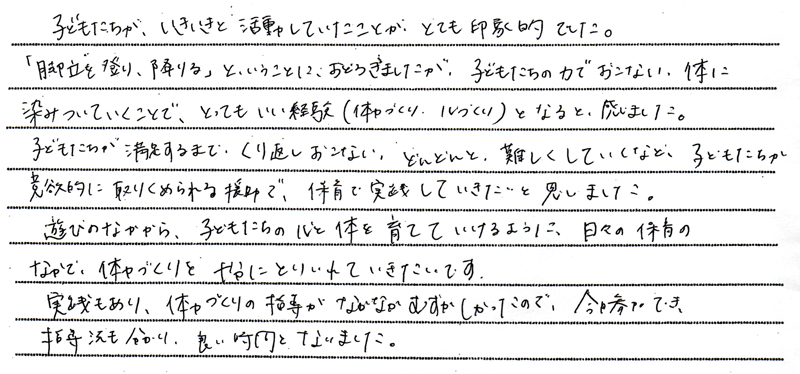 子どもたちが、いきいきと活動していたことが、とても印象的でした。
「脚立を登り、降りる」ということに、おどろきましたが、子どもたちの力でおこない、体に
染みついていくことで、とってもいい経験(体力づくり・心づくり)となると、感じました。
子どもたちが満足するまで、くり返しおこない、どんどんと、難しくしていくなど、子どもたちが
意欲的に取りくめられる援助で、保育で実践していきたいと思いました。
遊びのなかから、子どもたちの心と体を育てていけるように、日々の保育の
なかで、体力づくりを十分にとりいれていきたいです。
実践もあり、体力づくりの指導がなかなかむずかしかったので、今回参加でき、
指導法も分かり、良い時間となりました。